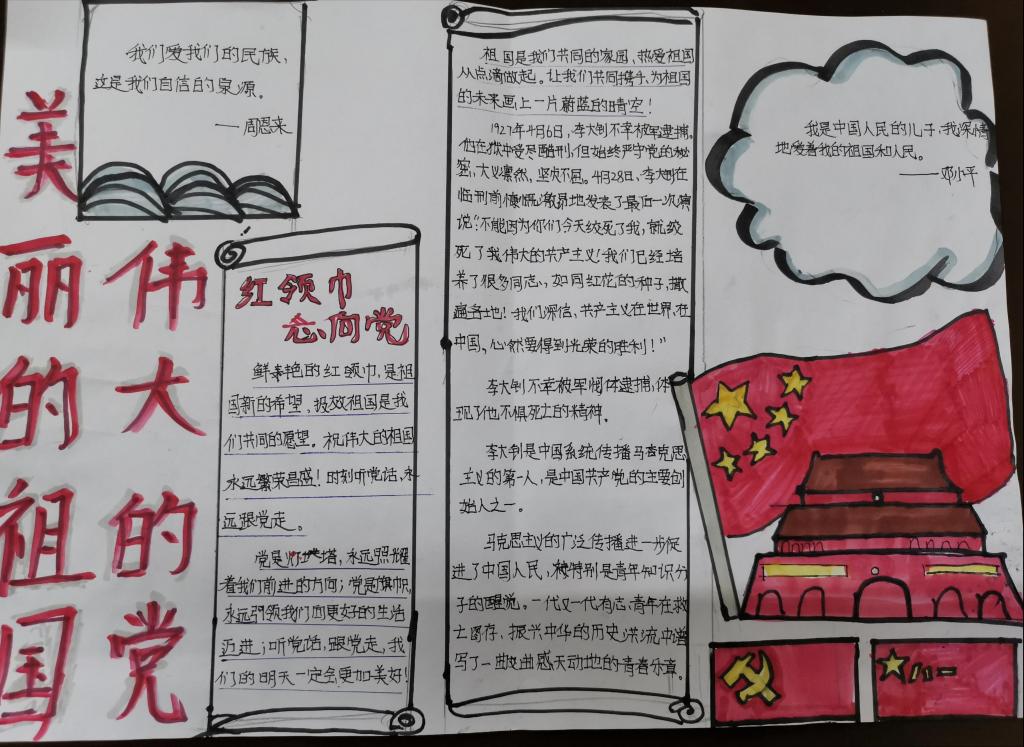 美丽的祖国
伟大的党
我们爱我们的民族，
这是我们自信的泉源。
——周恩来
红领巾
心向党
鲜艳的红领巾，是祖
国新的希望，报效祖国是我
们共同的愿望。祝伟大的祖国
永远繁荣昌盛！时刻听党话，永
远跟党走。
党是灯塔，永远照耀
着我们前进的方向；党是旗帜，
永远引领我们向更好的生活
迈进；听党话，跟党走，我
们的明天一定会更加美好！
祖国是我们共同的家园，热爱祖国
从点滴做起。让我们共同携手，为祖国
的未来画上一片蔚蓝的晴空！
1927年4月6日，李大钊不幸被军逮捕。
他在狱中受尽酷刑，但始终严守党的秘
密，大义凛然，坚贞不屈。4月28日，李大钊在
临刑前慷慨激昂地发表了最后一次演
说：“不能因为你们今天绞死了我，就绞
死了我伟大的共产主义！我们已经培
养了很多同志，如同红花的种子，撒
遍各地！我们深信，共产主义在世界，在
中国，必然要得到光荣的胜利！”
李大钊不幸被军阀体逮捕，体
现了他不惧死亡的精神。
李大钊是中国系统传播马克思
主义的第一人，是中国共产党的主要创
始人之一。
马克思主义的广泛传播进一步促
进了中国人民，特别是青年知识分
子的醒觉。一代又一代有志青年在救
亡图存、振兴中华的历史洪流中谱
写了一曲曲感天动地的青春乐章。
我是中国人民的儿子，我深情
地爱着我的祖国和人民。
——邓小平
八一